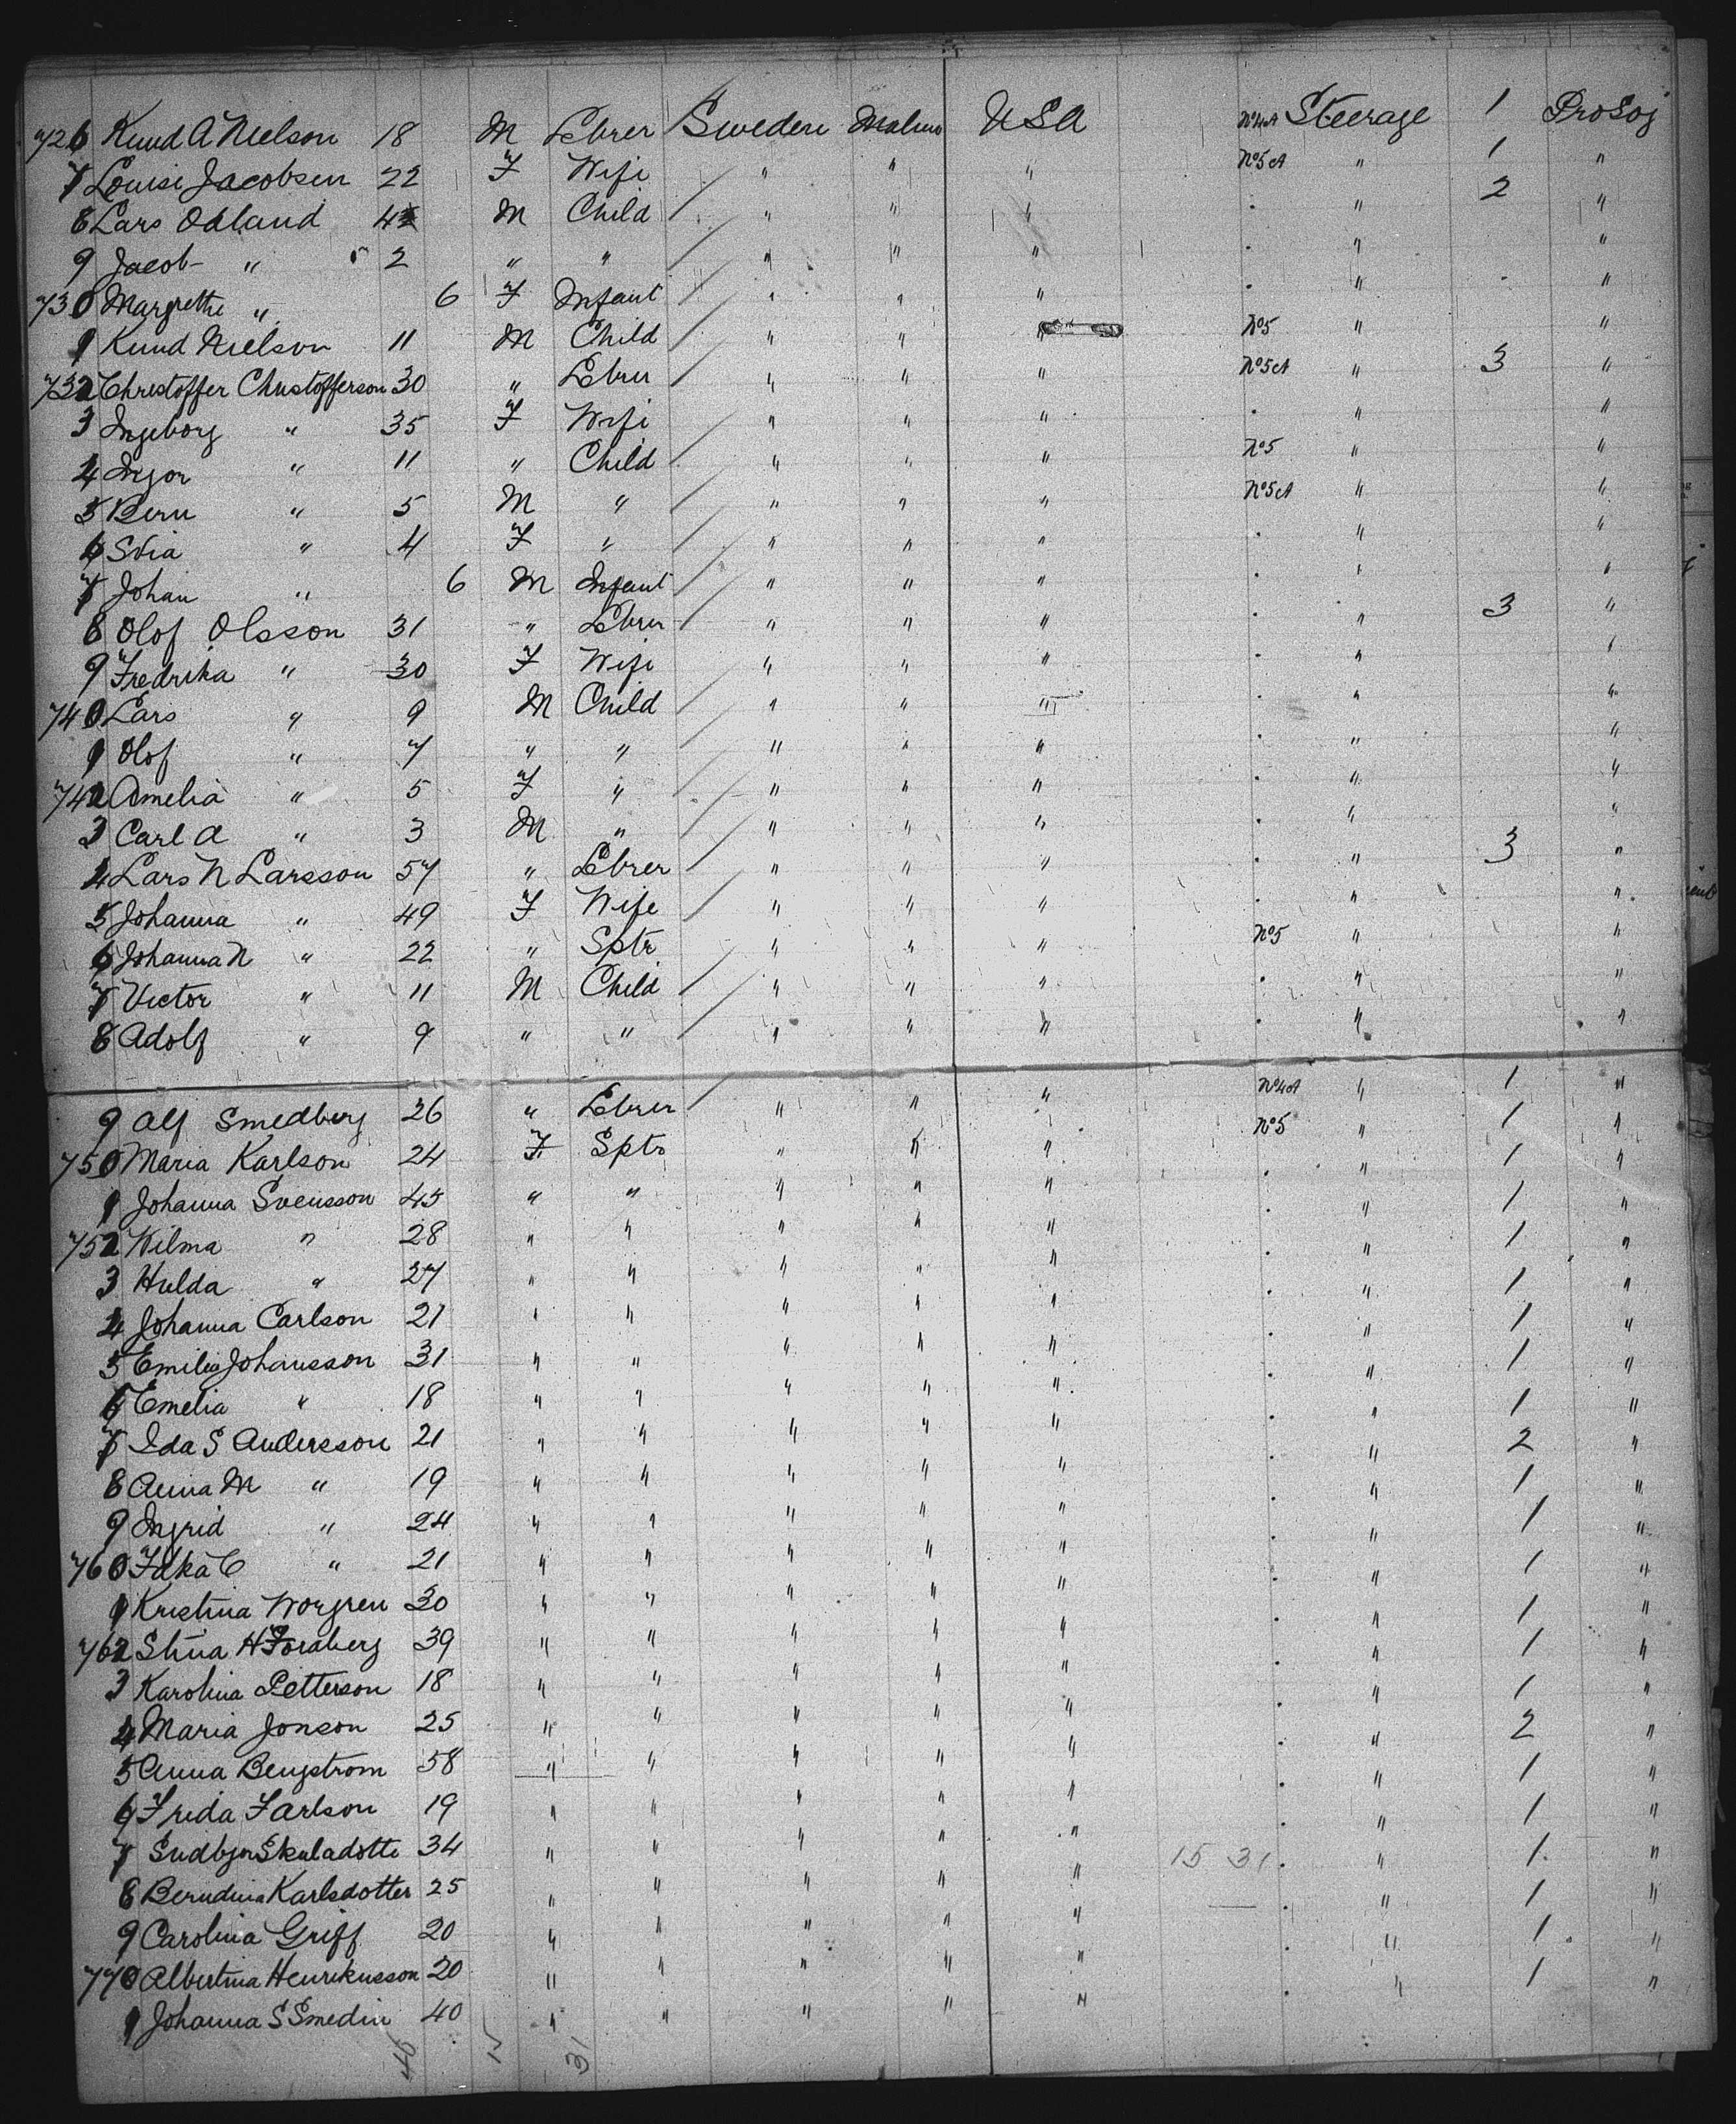 726 Knud A Nielson 18 M Lebrer Sweden Malmo USA No4A Steerage 1 Pro Soj
7 Louise Jacobsen 22 F Wife " " " No5A " 1 "
8 Lars Odland 4 M Child " " " . " 2 "
9 Jacob " 2 " " " " " . " "
730 Margrethe " 6 F Infant " " " . " "
1 Knud Nielson 11 M Child " " " No5 " "
732 Christoffer Christofferson 30 " Lebrer " " " No5A " 3 "
3 Ingeborg " 35 F Wife " " " . " "
4 Ingor " 11 " Child " " " No5 " "
5 Bern " 5 M " " " " No5A " "
6 Svia " 4 F " " " " . " "
7 Johan " 6 M Infant " " " . " "
8 Olof Olsson 31 " Lebrer " " " . " 3 "
9 Fredrika " 30 F Wife " " " . " "
740 Lars " 9 M Child " " " . " "
1 Olof " 7 " " " " " . " "
742 Amelia " 5 F " " " " . " "
3 Carl A " 3 M " " " " . " "
4 Lars N Larsson 57 " Lebrer " " " . " 3 "
5 Johanna " 49 F Wife " " " . " "
6 Johanna N " 22 " Sptr " " " No5 " "
7 Victor " 11 M Child " " " . " "
8 Adolf " 9 " " " " " . " "
9 Alf Smedberg 26 " Lebrer " " " No4A " 1 "
750 Maria Karlson 24 F Sptr " " " No5 " 1 "
1 Johanna Svensson 45 " " " " " . " 1 "
752 Wilma " 28 " " " " " . " 1 "
3 Hulda " 27 " " " " " . " 1 "
4 Johanna Carlson 21 " " " " " . " 1 "
5 Emilia Johansson 31 " " " " " . " 1 "
6 Emelia " 18 " " " " " . " 1 "
7 Ida S Andersson 21 " " " " " . " 1 "
8 Anna M " 19 " " " " " . " 2 "
9 Ingrid " 24 " " " " " . " 1 "
760 Fdka C " 21 " " " " " . " 1 "
1 Kristina Norgren 30 " " " " " . " 1 "
762 Stina H Forsberg 39 " " " " " . " 1 "
3 Karolina Petterson 18 " " " " " . " 1 "
4 Maria Jonson 25 " " " " " . " 1 "
5 Anna Bengstrom 58 " " " " " . " 2 "
6 Frida Farlson 19 " " " " " . " 1 "
7 Gudbjor Skuladotte 34 " " " " " 15 31 . " 1 "
8 Berndina Karlsdotter 25 " " " " " . " 1 "
9 Carolina Griff 20 " " " " " . " 1 "
770 Albertina Henrikusson 20 " " " " " . " 1 "
1 Johanna S Smedin 40 " " " " " . " 1 "
46 15 31